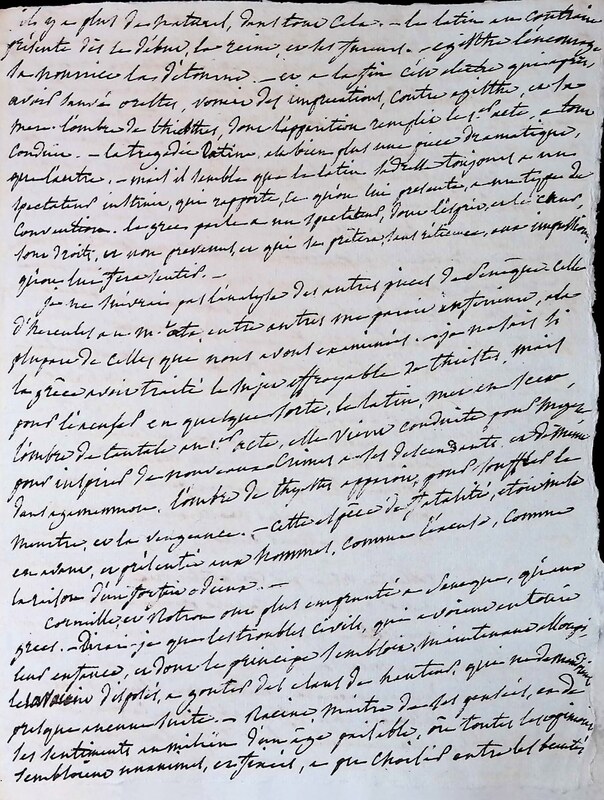 il y a plus de naturel, dans tout cela. — le latin au contraire
présente dès le début, la reine, et ses fureurs. — egisthe l'encourage
la nourrice la détourne. — et a la fin c'est electre qui après
avoir sauvé orestes, vomit des imprécations, contre egisthe, et sa
mere. l'ombre de thiestes, dont l'apparition remplit le 1er acte, a tout
conduit. — la tragédie latine, est bien plus une piece dramatique,
que l'autre. — mais il semble que le latin s'adresse toujours a un
spectateur instruit, qui rapporte, ce qu'on lui présente, a un type de
convention. le grec parle a un spectateur, dont l'esprit, et le cœur,
sont droits, et non prévenus, et qui se prêtera sans réticence, aux impressions
qu'on lui fera sentir. —
je ne suivrai pas l'analyse des autres pieces de Seneque. celle
d'hercules au m.t œta, entre autres me parait inferieure, a la
plupart de celles, que nous avons examinées. — je ne sais si
la grèce avoit traité le sujet effroyable de thiestes, mais
pour l'excuser en quelque sorte, le latin, met en scene,
l'ombre de tantale au 1er acte, elle vient conduite pour
pour inspirer de nouveaux crimes a ses descendants. et de même
dans agamemnon. l'ombre de thyestes apparoit, pour souffler le
meurtre, et la vengeance. — cette espece de fatalité, etoit mise
en avant, et présentée aux hommes, comme l'excuse, comme
la raison d'un sort odieux. —
Corneille, et Rotrou ont plus emprunté a Seneque, qu'aux
grecs. — Dirai-je que les troubles civils, qui avoient entouré
leur enfance, et dont le principe sembloit, maintenant
a goutes des elans de hauteur, qui ne
presque aucune suite. — Racine, maitre de ses pensées, et de
ses sentiments au milieu d'un âge paisible, où toutes les opinions
sembloient unanimes, et fixées, a pu choisir entre les beautés